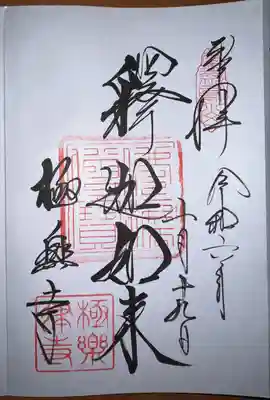 奉拝
令和六年
十月十九日
釋迦如来
極楽寺
極樂
律寺